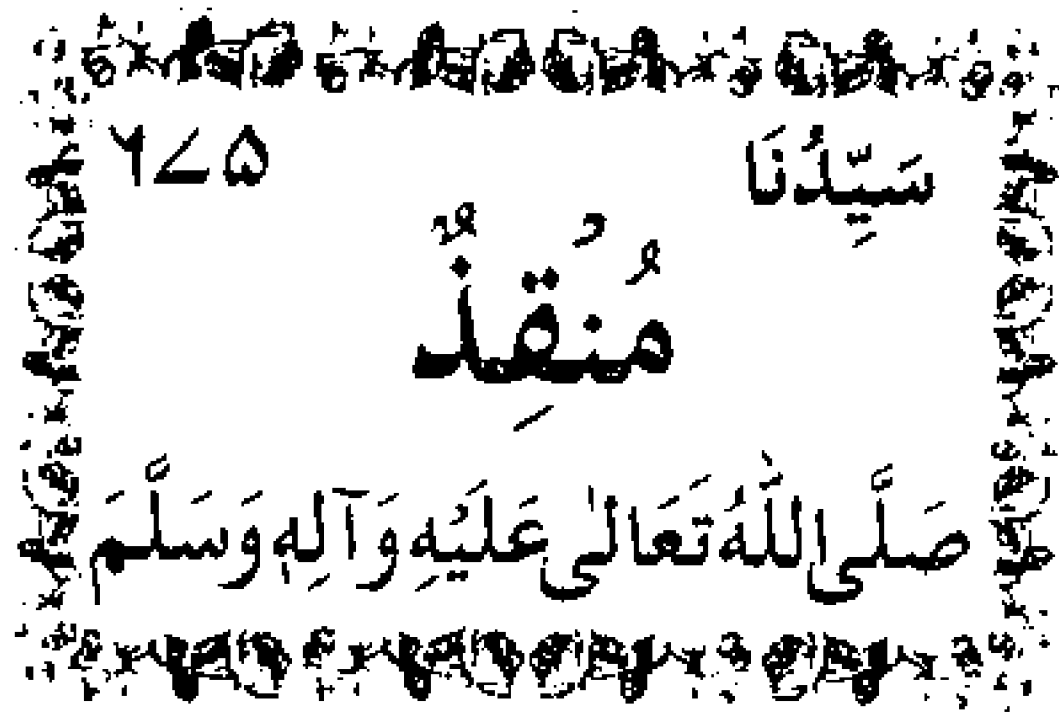 سَيِّدُنَا ۶۷۵
مُنْقِذٌ
صَلَّى اللّٰهُ تَعَالٰى عَلَيْهِ وَآلِهٖ وَسَلَّمَ